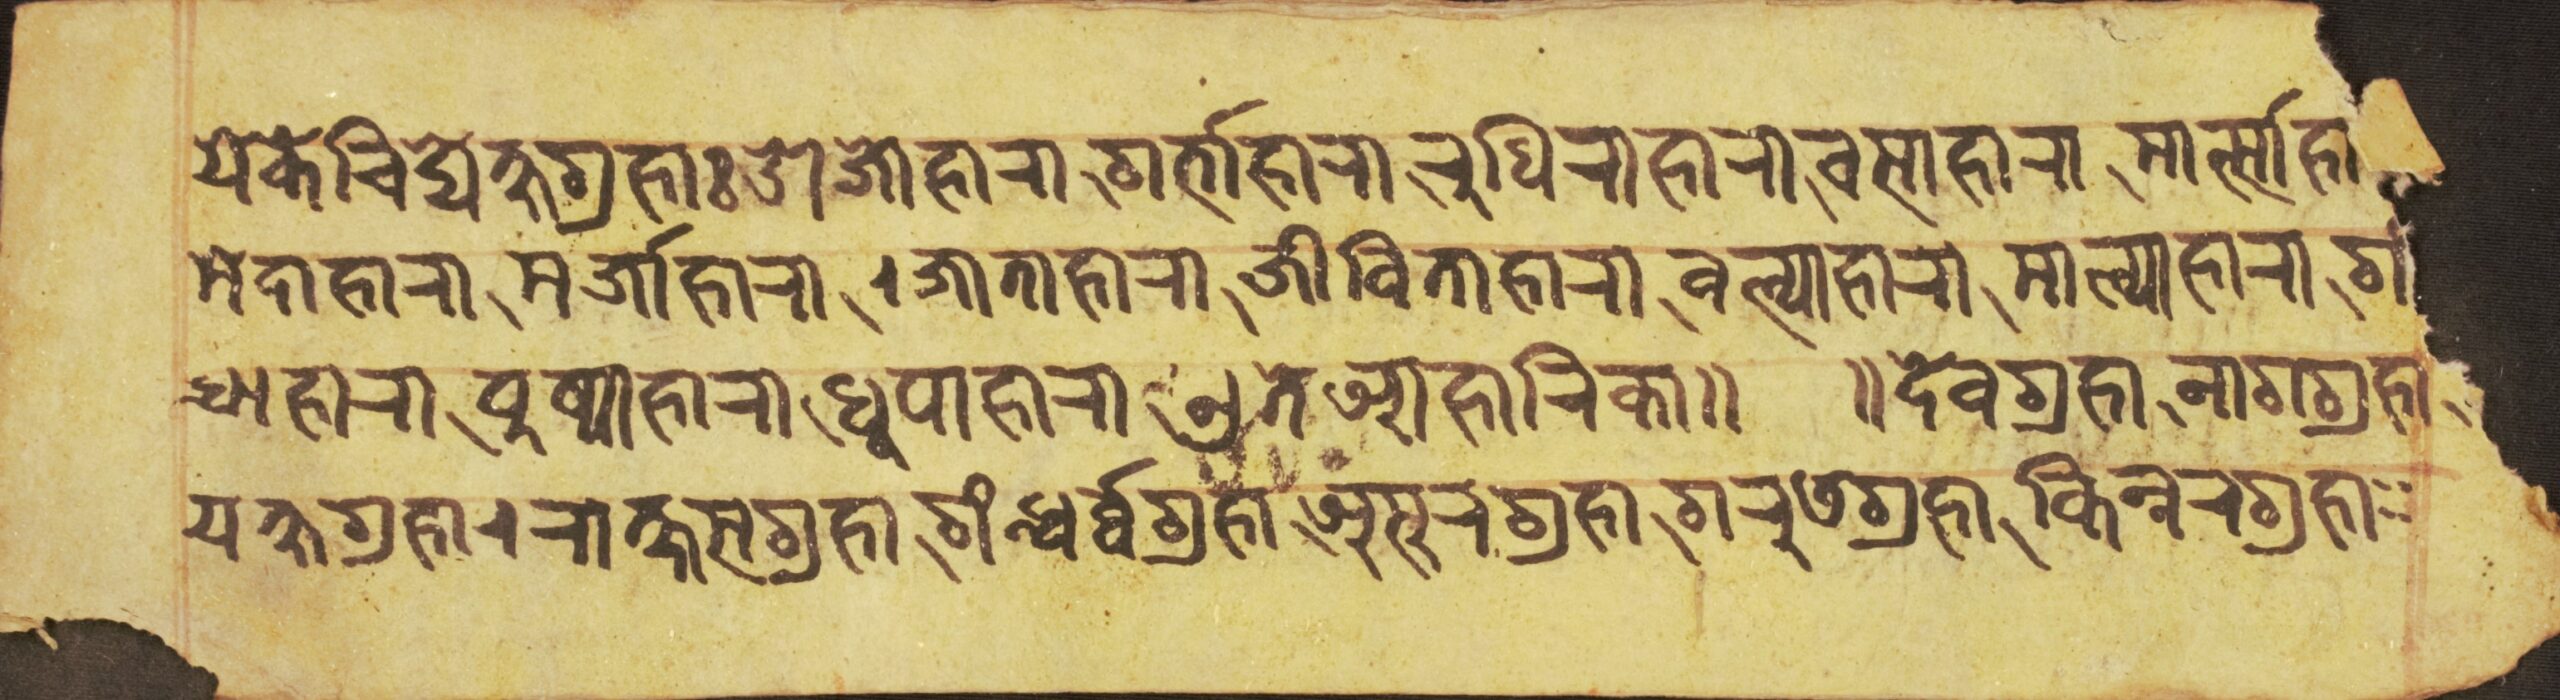 येकेचिद्येक्षग्रहाः ओजोहारा गर्त्ताहारा रुधिराहारा वसाहारा मार्त्साहा
मेदाहारा मर्जाहारा । जाताहारा जीविताहारा वल्याहारा माल्याहारा ग
न्धाहारा पुष्पाहारा धूपाहारा आहारिका ॥ ॥ देवग्रहा नागग्रहा
यक्षग्रहा । राक्षसग्रहा गन्धर्व्वग्रहा असुरग्रहा गरुडग्रहा किन्नरग्रहा